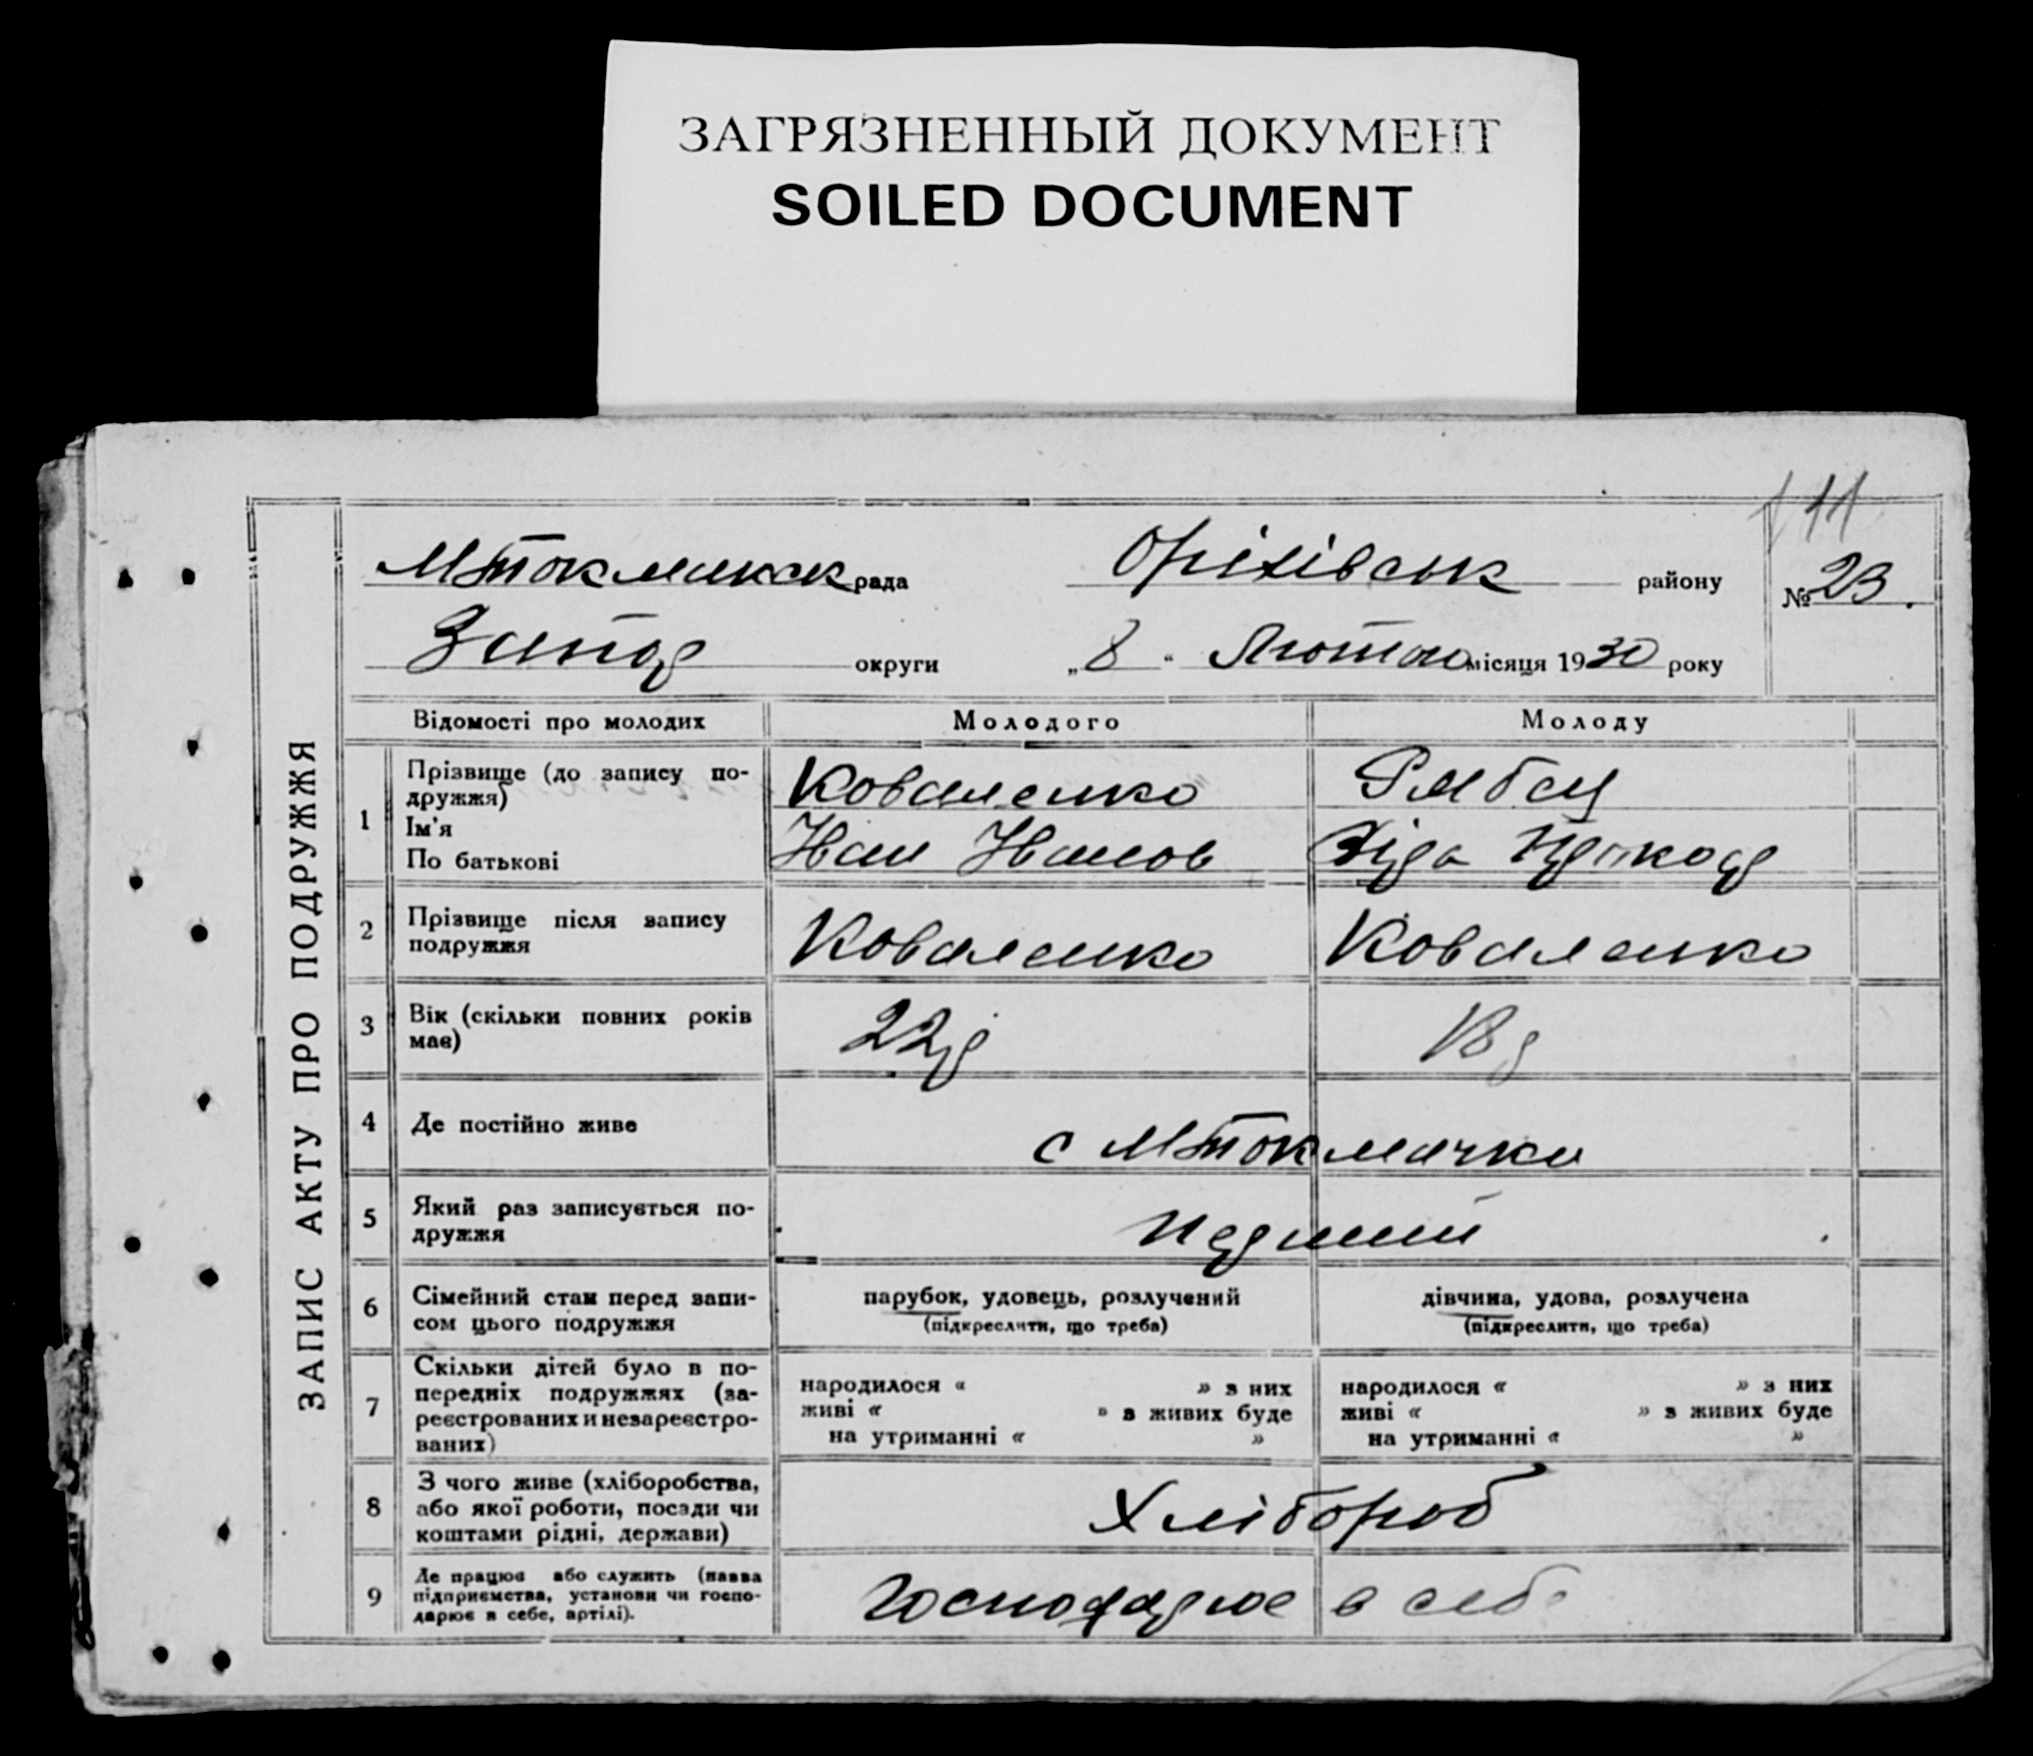 ЗАГРЯЗНЕННЫЙ ДОКУМЕНТ
SOILED DOCUMENT
ЗАПИС АКТУ ПРО ПОДРУЖЖЯ
МТокмакск рада Оріхівськ району № 23.
Запор округи „ 8 “ Лютого місяця 1930 року
Відомості про молодих Молодого Молоду
1 Прізвище (до запису по-
дружжя) Коваленко Рябец
Ім'я
По батькові Иван Иванов
2 Прізвище після запису
подружжя Коваленко Коваленко
3 Вік (скільки повних років
має) 22р 18р
4 Де постійно живе с МТокмачки
5 Який раз записується по-
дружжя Перший
6 Сімейний стан перед запи-
сом цього подружжя
парубок, удовець, розлучений
(підкреслити, що треба)
дівчина, удова, розлучена
(підкреслити, що треба)
7 Скільки дітей було в по-
передніх подружжях (за-
реєстрованих и незареєстро-
ваних)
народилося « » з них
живі « » з живих буде
на утриманні « »
народилося « » з них
живі « » з живих буде
на утриманні « »
8 З чого живе (хліборобства,
або якої роботи, посади чи
коштами рідні, держави) Хлібороб
9 Де працює або служить (назва
підприємства, установи чи госпо-
дарює в себе, артілі). Господарює в себе